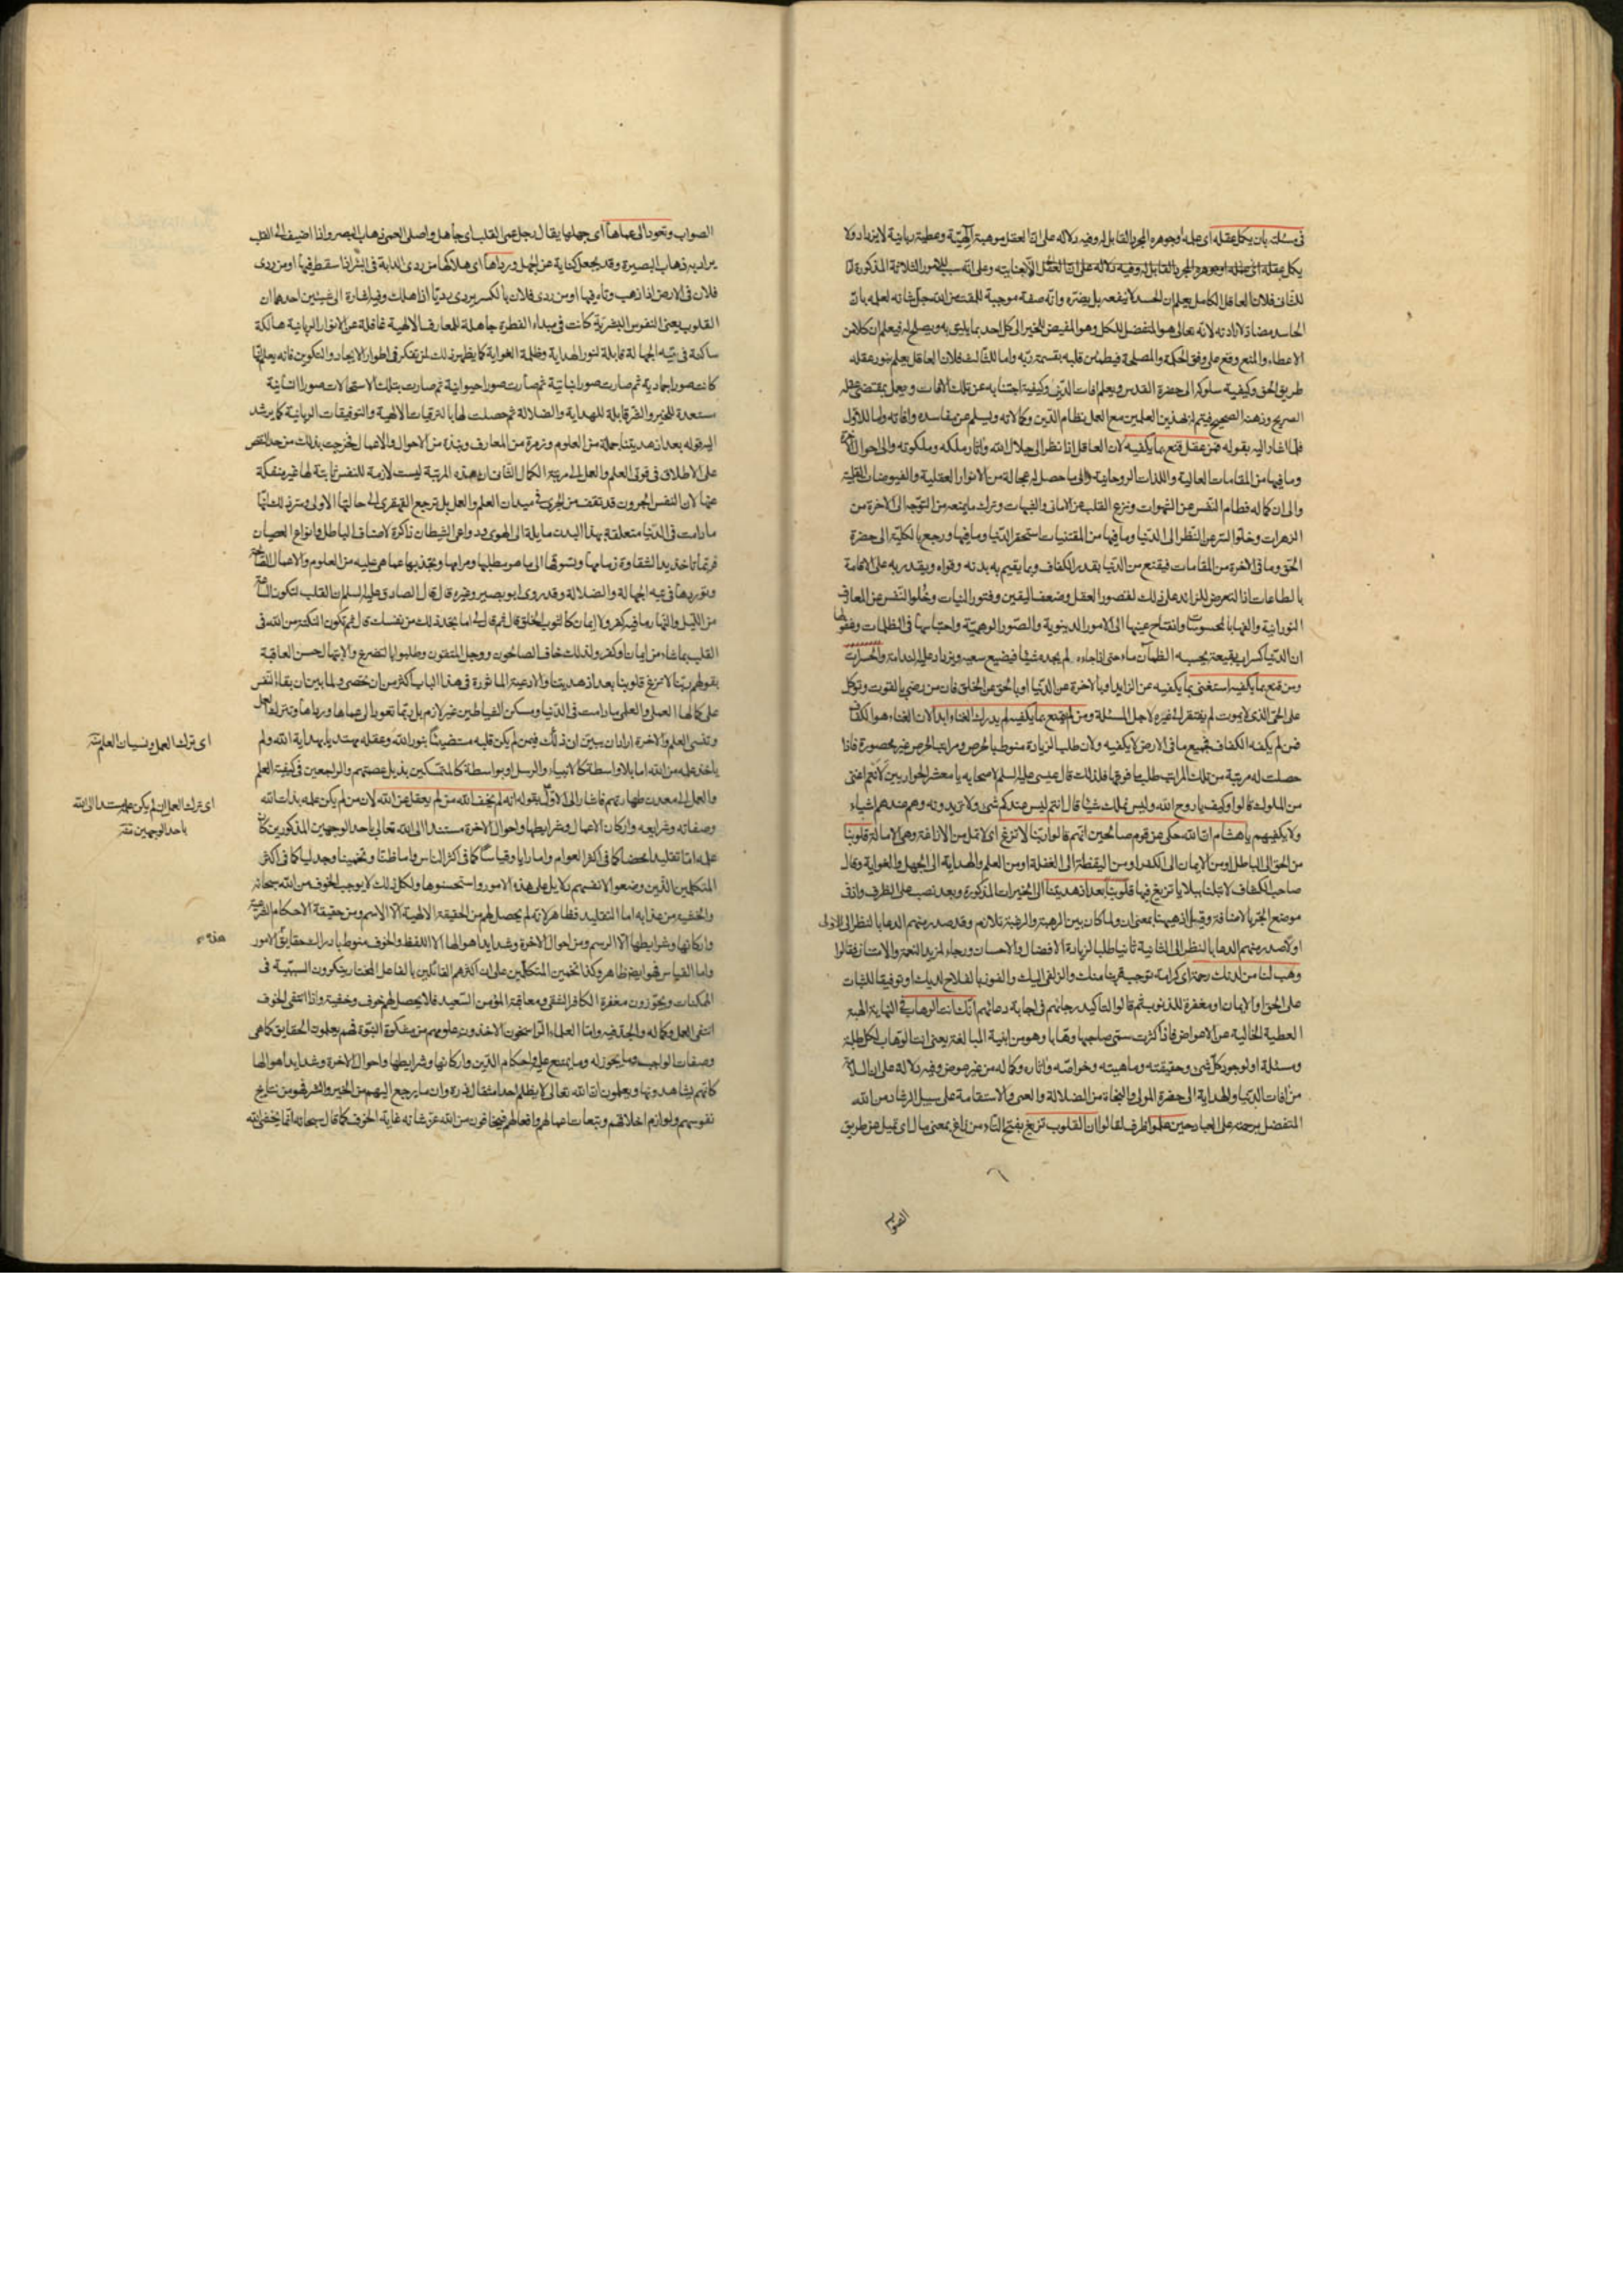 في مسئلته بان يكمل عقله اى علمه او جوهره المجرد القابل له وفيه دلالة على ان العقل موهبة الٰهيّة وعطية ربانية لا يزداد ولا
يكمل عقله اى علمه او جوهره المجرد القابل له وفيه دلالة على ان العقل الا بعنايته وعلى انه سبب للامور الثلاثة المذكورة اما
للثانى فلان العاقل الكامل يعلم ان الحسد لا ينفعه بل يضره وانه صفة موجبة للمقت من الله جل شانه لعلمه بان
الحاسد مضاد لارادته لانه تعالى هو المتفضل للكل وهو المفيض للخير الى كل احد بما يليق به ويصلح له فيعلم ان كلا من
الاعطاء والمنع وقع على وفق الحكمة والمصلحة فيطمئن قلبه بقسمة ربه واما للثالث فلان العاقل يعلم بنور عقله
طريق الحق وكيفية سلوكه الى حضرة القدس ويعلم افات الدين وكيفية اجتنابه عن تلك الافات ويعمل بمقتضى عقله
الصريح وذهنه الصحيح فيتم له بهذين العلمين مع العمل نظام الدين وكمالاته ويسلم عن مفاسده وافاته واما للاول
فلما اشار اليه بقوله فمن عقل قنع بما يكفيه لان العاقل اذا نظر الى جلال الله واثار ملكه وملكوته والى احوال الآخرة
وما فيها من المقامات العالية واللذات الروحانية والى ما حصل له عجالة من الانوار العقلية والفيوضات القلبية
والى ان كماله فطام النفس عن الشهوات ونزع القلب عن الامانى والشبهات وترك ما يمنعه من التوجه الى الاخرة من
الزهرات وخلو السر عن النظر الى الدنيا وما فيها من المقتنيات استحقر الدنيا وما فيها ورجع بالكلية الى حضرة
الحق وما فى الاخرة من المقامات فيقنع من الدنيا بقدر الكفاف وبما يقيم به بدنه وقواه ويقدر به على الاقامة
بالطاعات اذ التعرض للزائد على ذلك لقصور العقل وضعف اليقين وفتور النيات وخلو النفس عن المعارف
النورانية والفها بالمحسوسات وانفتاح عينها الى الامور الدنيوية والصور الوهمية واحتباسها فى الظلمات وغفولها
ان الدنيا كسراب بقيعة يحسبه الظمآن ماء حتى اذا جاءه لم يجده شيئا فيضيع سعيه ويزداد عليه الندامة والحسرات
ومن قنع بما يكفيه استغنى بما يكفيه عن الزايد او بالاخرة عن الدنيا او بالحق عن الخلق فان من رضى بالقوت وتوكل
على الحى الذى لا يموت لم يفتقر الى غيره لاجل المسئلة ومن لم يقنع بما يكفيه لم يدرك الغناء ابدا لان الغناء هو الكفاف
فمن لم يكفه الكفاف فجميع ما فى الارض لا يكفيه ولان طلب الزيادة منوط بالحرص ومراتب الحرص غير محصورة فاذا
حصلت له مرتبة من تلك المراتب طلب ما فوقها فلذلك قال عيسى عليه السلم لاصحابه يا معشر الحواريين لانتم اغنى
من الملوك قالوا وكيف يا روح الله وليس نملك شيئا قال انتم ليس عندكم شئ ولا تريدونه وهم عندهم اشياء
ولا يكفيهم يا هشام ان الله حكى عن قوم صالحين انهم قالوا ربنا لا تزغ اى لا تمل من الازاغة وهى الامالة قلوبنا
من الحق الى الباطل او من الايمان الى الكفر او من اليقظة الى الغفلة او من العلم والهداية الى الجهل والغواية وقال
صاحب الكشاف لا تبلنا ببلايا تزيغ فيها قلوبنا بعد اذ هديتنا الى الخيرات المذكورة وبعد نصب على الظرف واذ فى
موضع الجر بالاضافة وقيل اذ هيهنا بمعنى ان ولما كان بين الرهبة والرغبة تلازم وقد صدر منهم الدعا بالنظر الى الاولى
اولا صدر منهم الدعا بالنظر الى الثانية ثانيا طلبا لزيادة الافضال والاحسان ورجاء لمزيد النعمة والامتنان فقالوا
وهب لنا من لدنك رحمة اى كرامة توجب قربنا منك والزلفى اليك والفوز بالفلاح لديك او توفيقا للثبات
على الحق او الايمان او مغفرة للذنوب ثم قالوا لتاكيد رجائهم فى اجابة دعائهم انك انت الوهاب فى النهاية الهبة
العطية الخالية عن الاعواض فاذا كثرت سمى صاحبها وهابا وهو من ابنية المبالغة يعنى انت الوهاب لكل طلبة
ومسئلة او لوجود كل شئ وحقيقته وماهيته وخواصه واثاره وكماله من غير عوض وفيه دلالة على ان السلامة
من افات الدنيا والهداية الى حضرة المولى والنجاة من الضلالة والعمى والاستقامة على سبيل الرشاد من الله
المتفضل برحمته على العباد حين علموا ظرف لقالوا ان القلوب تزيغ بفتح التاء من زاغ بمعنى مال اى تميل عن طريق
الصواب
الصواب وتعود الى عماها اى جهلها يقال رجل عمى القلب اى جاهل واصل العمى ذهاب البصر واذا اضيف الى القلب
يراد به ذهاب البصيرة وقد يجعل كناية عن الجهل ورداها اى هلاكها من ردى الدابة فى البئر اذا سقط فيها او من ردى
فلان فى الارض اذا ذهب وتاه فيها او من ردى فلان بالكسر يردى رديا اذا هلك وفيه اشارة الى شيئين احدهما ان
القلوب يعنى النفوس البشرية كانت فى مبداء الفطرة جاهلة للمعارف الالهية غافلة عن الانوار الربانية هالكة
ساكنة فى تيه الجهالة قابلة لنور الهداية وظلمة الغواية كما يظهر ذلك لمن يتفكر فى اطوار الايجاد والتكوين فانه يعلم انها
كانت صورا جمادية ثم صارت صورا نباتية ثم صارت صورا حيوانية ثم صارت بتلك الاستحالات صورا انسانية
مستعدة للخير والشر قابلة للهداية والضلالة ثم حصلت لها بالترقيات الالهية والتوفيقات الربانية كما يرشد
اليه قوله بعد اذ هديتنا جملة من العلوم وزهرة من المعارف ونبذة من الاحوال والاعمال فخرجت بذلك من حد النقص
على الاطلاق فى قوتى العلم والعمل الى مرتبة الكمال الثانى ان هذه المرتبة ليست لازمة للنفس ثابتة لها غير منفكة
عنها لان النفس الحرون قد تقف من الجرى فى ميدان العلم والعمل بل ترجع القهقرى الى حالتها الاولى وسر ذلك انها
ما دامت فى الدنيا متعلقة بهذا البدن مايلة الى الهوى ودواعى الشيطان ذاكرة لاصناف الباطل وانواع العصيان
فربما تاخذ يد الشقاوة زمامها وتسوقها الى ما هو مطلبها ومرامها وتجذبها عما هى عليه من العلوم والاعمال الصالحة
وتوردها فى تيه الجهالة والضلالة وقد روى ابو بصير وغيره قال قال الصادق عليه السلم ان القلب لتكون الساعة
من الليل والنهار ما فيه كفر ولا ايمان كالثوب الخلق قال ثم قال لى اما تجد ذلك من نفسك قال ثم تكون النكتة من الله فى
القلب بما شاء من ايمان او كفر ولذلك خاف الصالحون ووجل المتقون وطلبوا بالتضرع والابتهال حسن العاقبة
بقولهم ربنا لا تزغ قلوبنا بعد اذ هديتنا والادعية الماثورة فى هذا الباب اكثر من ان تحصى ولما بين ان بقاء النفس
على كمالها العملى والعلمى ما دامت فى الدنيا ومسكن الشياطين غير لازم بل ربما تعود الى عماها ورداها وتترك العمل
وتنسى العلم والاخرة اراد ان يبين ان ذلك فيمن لم يكن قلبه مستضيئا بنور الله وعقله مهتديا بهداية الله ولم
ياخذ علمه من الله اما بلا واسطة كالانبياء والرسل او بواسطة كالمتمسكين بذيل عصمتهم والراجعين فى كيفية العلم
والعمل الى معدن طهارتهم فاشار الى الاول بقوله انه لم يخف الله من لم يعقل عن الله لان من لم يكن علمه بذات الله
وصفاته وشرايعه واركان الاعمال وشرايطها واحوال الاخرة مستندا الى الله تعالى باحد الوجهين المذكورين كان
علمه اما تقليدا محضا كما فى اكثر العوام واما رايا وقياسا كما فى اكثر الناس واما ظنا وتخمينا وجدليا كما فى اكثر
المتكلمين الذين وضعوا لانفسهم دلايل على هذه الامور واستحسنوها ولكل ذلك لا يوجب الخوف من الله سبحانه
والخشية من عذابه اما التقليد فظاهر لانه لم يحصل لهم من الحقيقة الالهية الا الاسم ومن حقيقة الاحكام الشرعية
واركانها وشرايطها الا الرسم ومن احوال الاخرة وشدايد اهوالها الا اللفظ والخوف منوط بادراك حقايق الامور
واما القياس فهو ايضا ظاهر وكذا تخمين المتكلمين على ان اكثرهم القائلين بالفاعل المختار ينكرون السببية فى
الممكنات ويجوزون مغفرة الكافر الشقى ومعاقبة المؤمن السعيد فلا يحصل لهم خوف وخشية واذا انتفى الخوف
انتفى العمل وكماله والجد فيه واما العلماء الراسخون الاخذون علومهم من مشكوة النبوة فهم يعلمون الحقايق كما هى
وصفات الواجب وما يجوز له وما يمتنع عليه واحكام الدين واركانها وشرايطها واحوال الاخرة وشدايد اهوالها
كانهم يشاهدونها ويعلمون ان الله تعالى لا يظلم احدا مثقال ذرة وان ما يرجع اليهم من الخير والشر فهو من نتايج
نفوسهم ولوازم اخلاقهم وتبعات اعمالهم وافعالهم فيخافون من الله عز شانه غاية الخوف كما قال سبحانه انما يخشى الله
اى ترك العمل ونسيان العلم منه
اى ترك العمل ان لم يكن علمه مستندا الى الله
باحد الوجهين منه
هذه